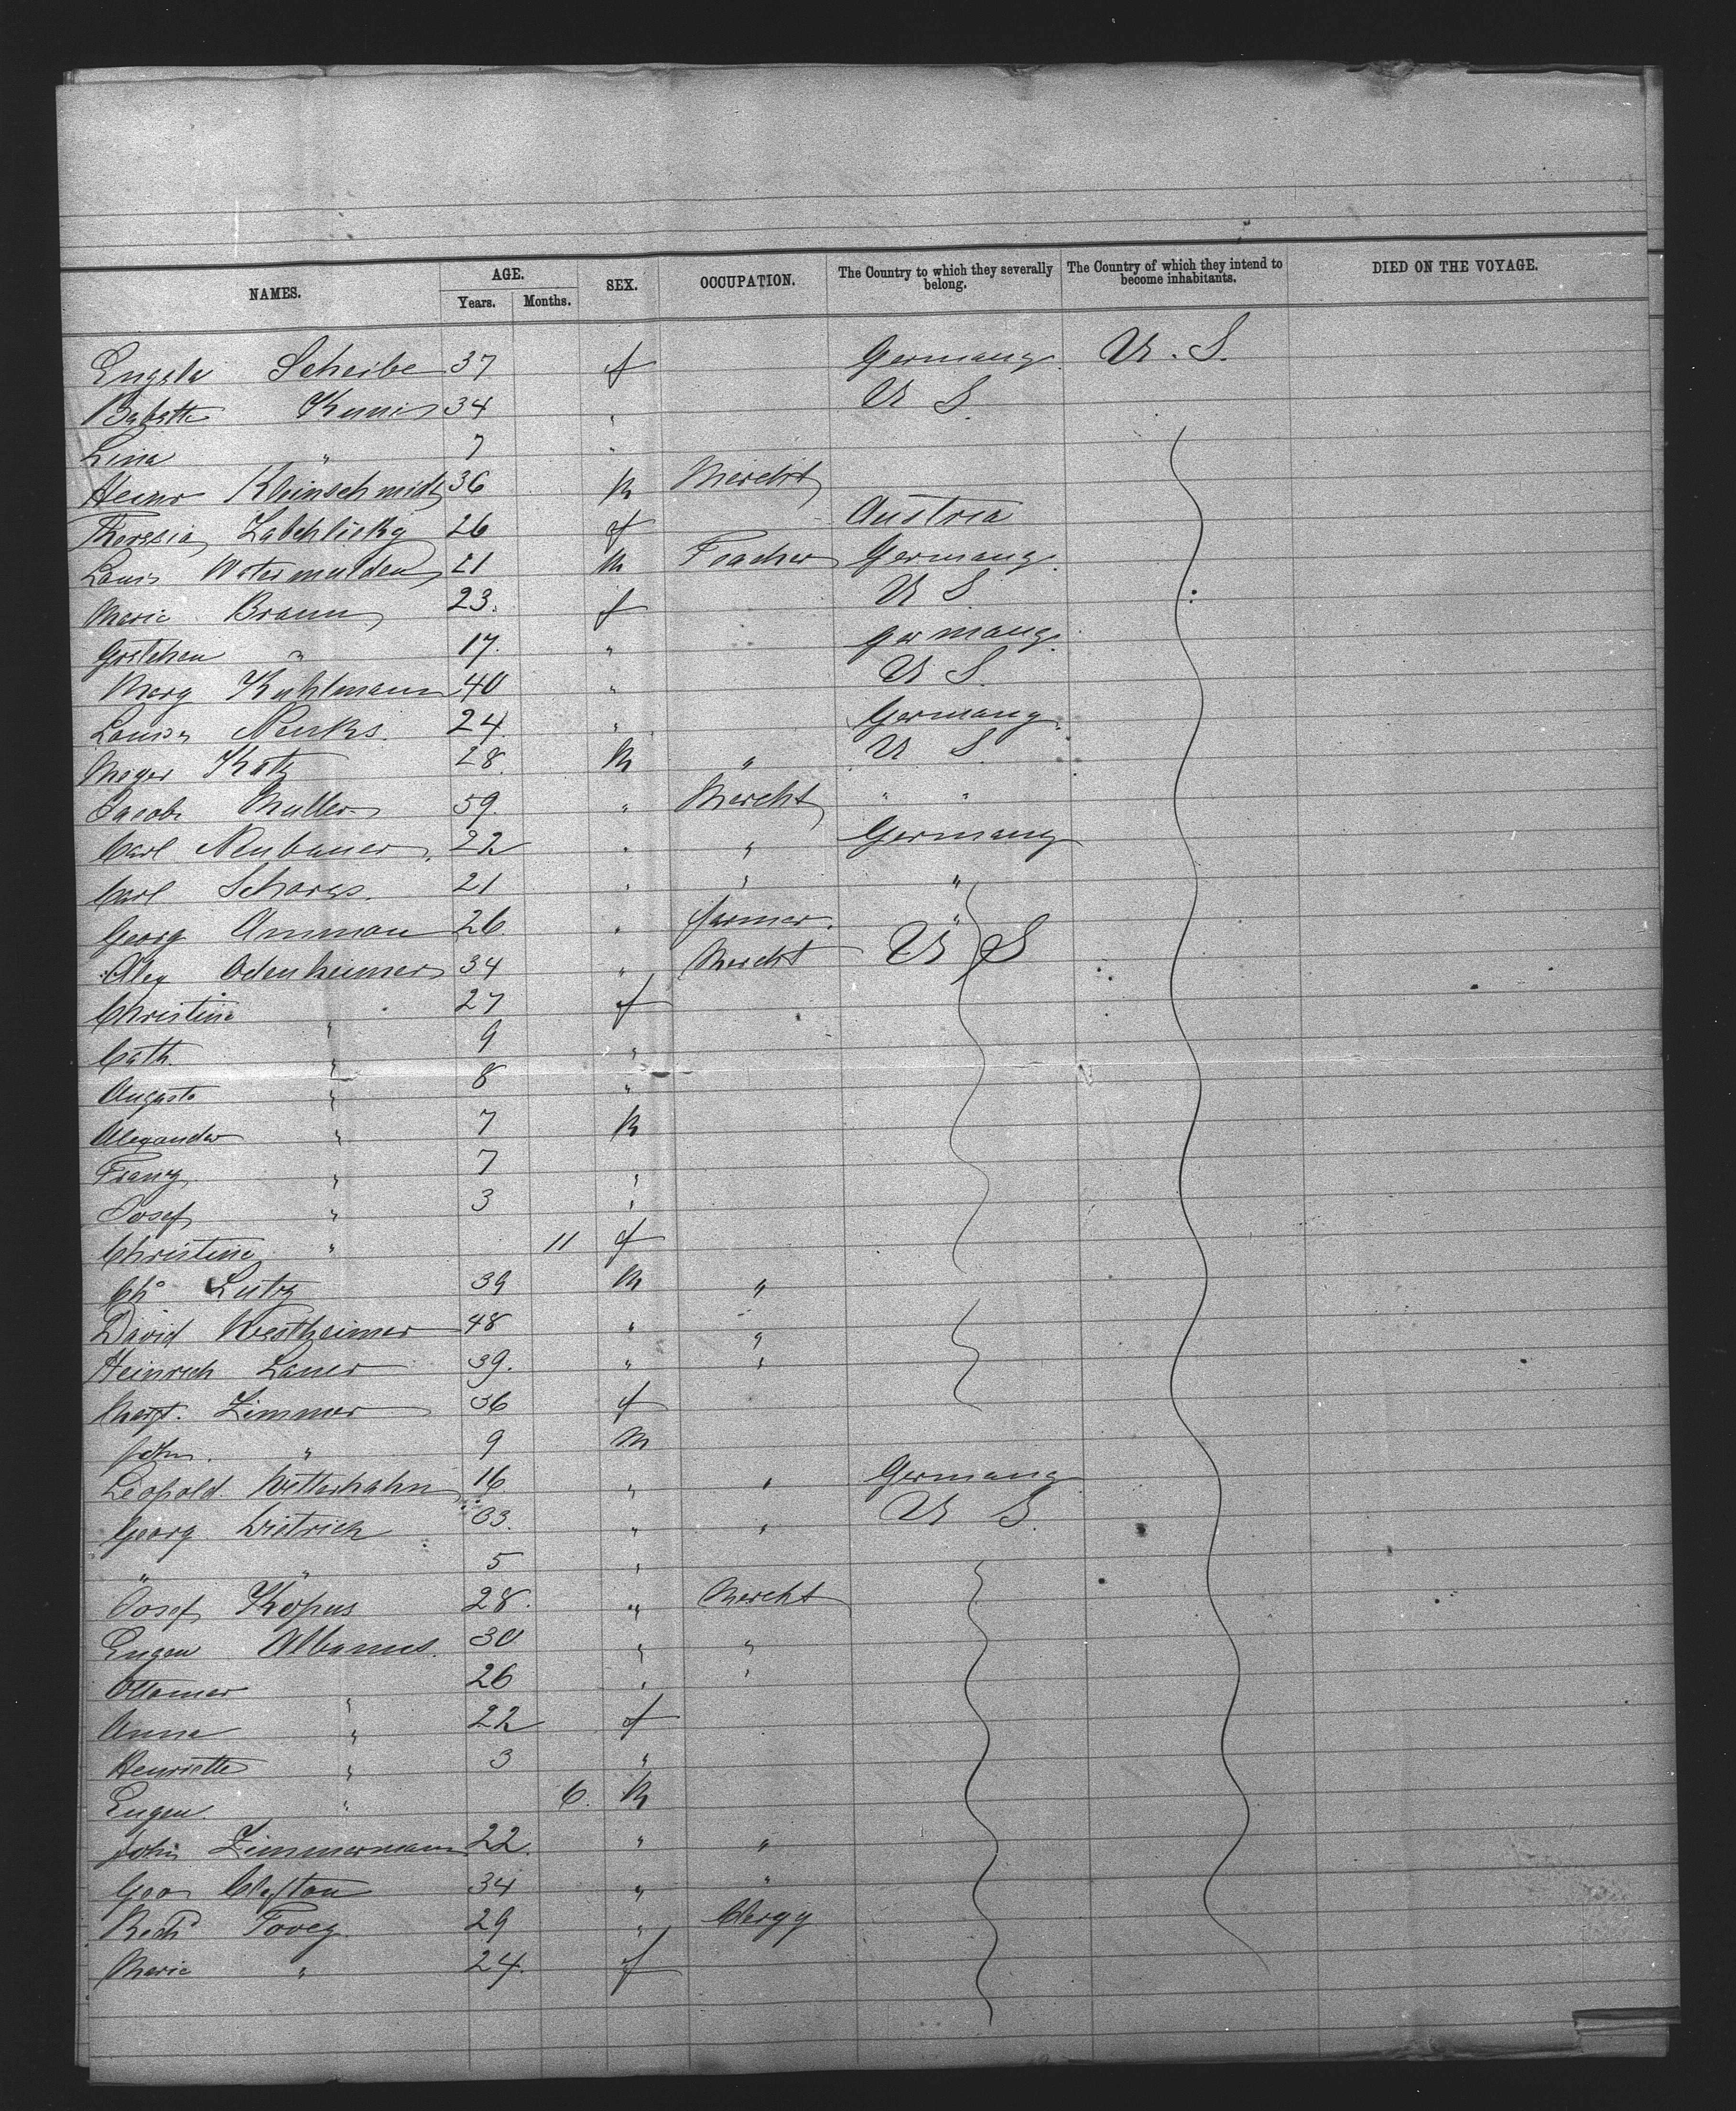 NAMES. AGE. Years. Months. SEX. OCCUPATION. The Country to which they severally belong. The Country of which they intend to become inhabitants. DIED ON THE VOYAGE.
Engela Scheibe 37 f Germany U. S.
Babette Kunis 34 " U S.
Lina " 7 "
Heinr Kleinschmidt 36 m Mercht
Theresia 26 f Austria
Louis Watermulder 21 m Teacher Germany
Marie Braun 23. f U S.
Gretchen " 17. " Germany
Marg Kuhlmann 40 " U S.
Louise 24. " Germany
Meyer Katz 28. m " U S
Jacob Muller 59. " Mercht " "
Carl Neubauer 22 " " Germany
Carl 21 " " "
Georg Amman 26. " farmer. "
Alex Odenheimer 34 " Mercht U S
Christine " 27 f
Cath. " 9 "
Augusta " 8 "
Alexander " 7 m
Franz " 7 "
Josef " 3 "
Christine " 11 f
Chs Lutz 39 m "
David Westheimer 48 " "
Heinrich Lauer 39. " "
Margt. Zimmer 36 f
John. " 9 m
Leopold Wetterhahn 16 " " Germany
Georg Dietrich 33. " " U S.
" " 5 "
Josef Köpus 28. " Mercht
Eugen Albanus. 30 " "
Ottomar " 26 " "
Anna " 22 f
Henriette " 3 "
Eugen. " 6. m
John Zimmermann 22. " "
Geo Clafton 34 " "
Richd Tovey. 29 " Clergy
Marie " 24. f